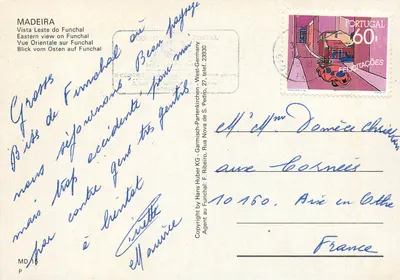 MADEIRA
Vista Leste do Funchal
Eastern view on Funchal
Vue Orientale sur Funchal
Blick vom Osten auf Funchal
Grosses
Bises de Funchal où
nous séjournons. Beau paysage
mais trop accidenté pour moi
par contre gens très gentils
à bientôt
Maurice
MD
P
Copyright by Hans Huber KG - Garmisch-Partenkirchen - West-Germany
Agent au Funchal: F. Ribeiro, Rua Nova de S. Pedro, 27, telef. 23930
PORTUGAL
60.
FELICITAÇÕES
Mr Mme Domèce
aux Cornées
10160. Aix en Othe
France